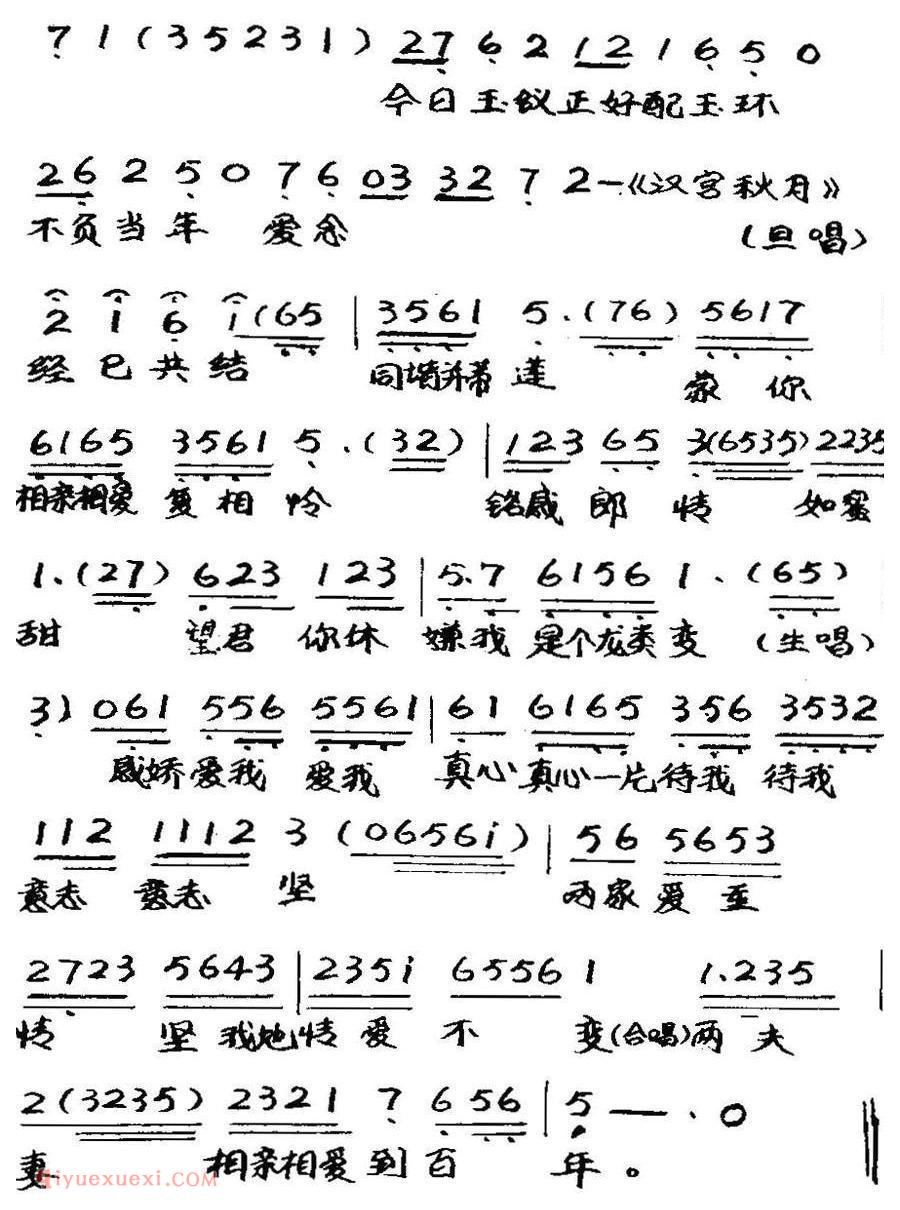 7 1 ( 3 5 2 3 1 ) 27 6 2 12 1 6 5 0
今日玉蚁正好配玉环
26 2 5 0 7 6 03 32 7 2 — 《汉宫秋月》
不负当年 爱念 (旦唱)
2 1 6 i (65 | 3561 5 . (76) 5617
经已共结 同堵并蒂莲 蒙你
6165 3561 5 . (32) | 123 65 3(6535) 2235
相亲相爱 复相怜 铭感郎情 如蜜
1 . (27) 623 123 | 5.7 6156 1 . (65)
甜 望君 你休 嫌我 是个龙类变 (生唱)
3) 061 556 5561 | 61 6165 356 3532
感娇爱我 爱我 真心真心一片待我 待我
112 1112 3 (0656i) | 56 5653
意志 意志 坚 两家爱至
2723 5643 | 235i 6556 1 1.235
情 坚我她情爱 不 变(合唱)两夫
2 (3235) 2321 7 656 | 5 — . 0
妻 相亲相爱到百 年。
iyuexuexi.com